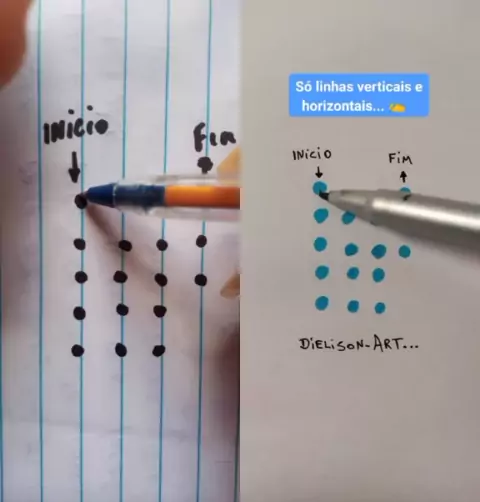 INICIO
FIM
Só linhas verticais e
horizontais...
INICIO
FIM
DiELiSON-ART...